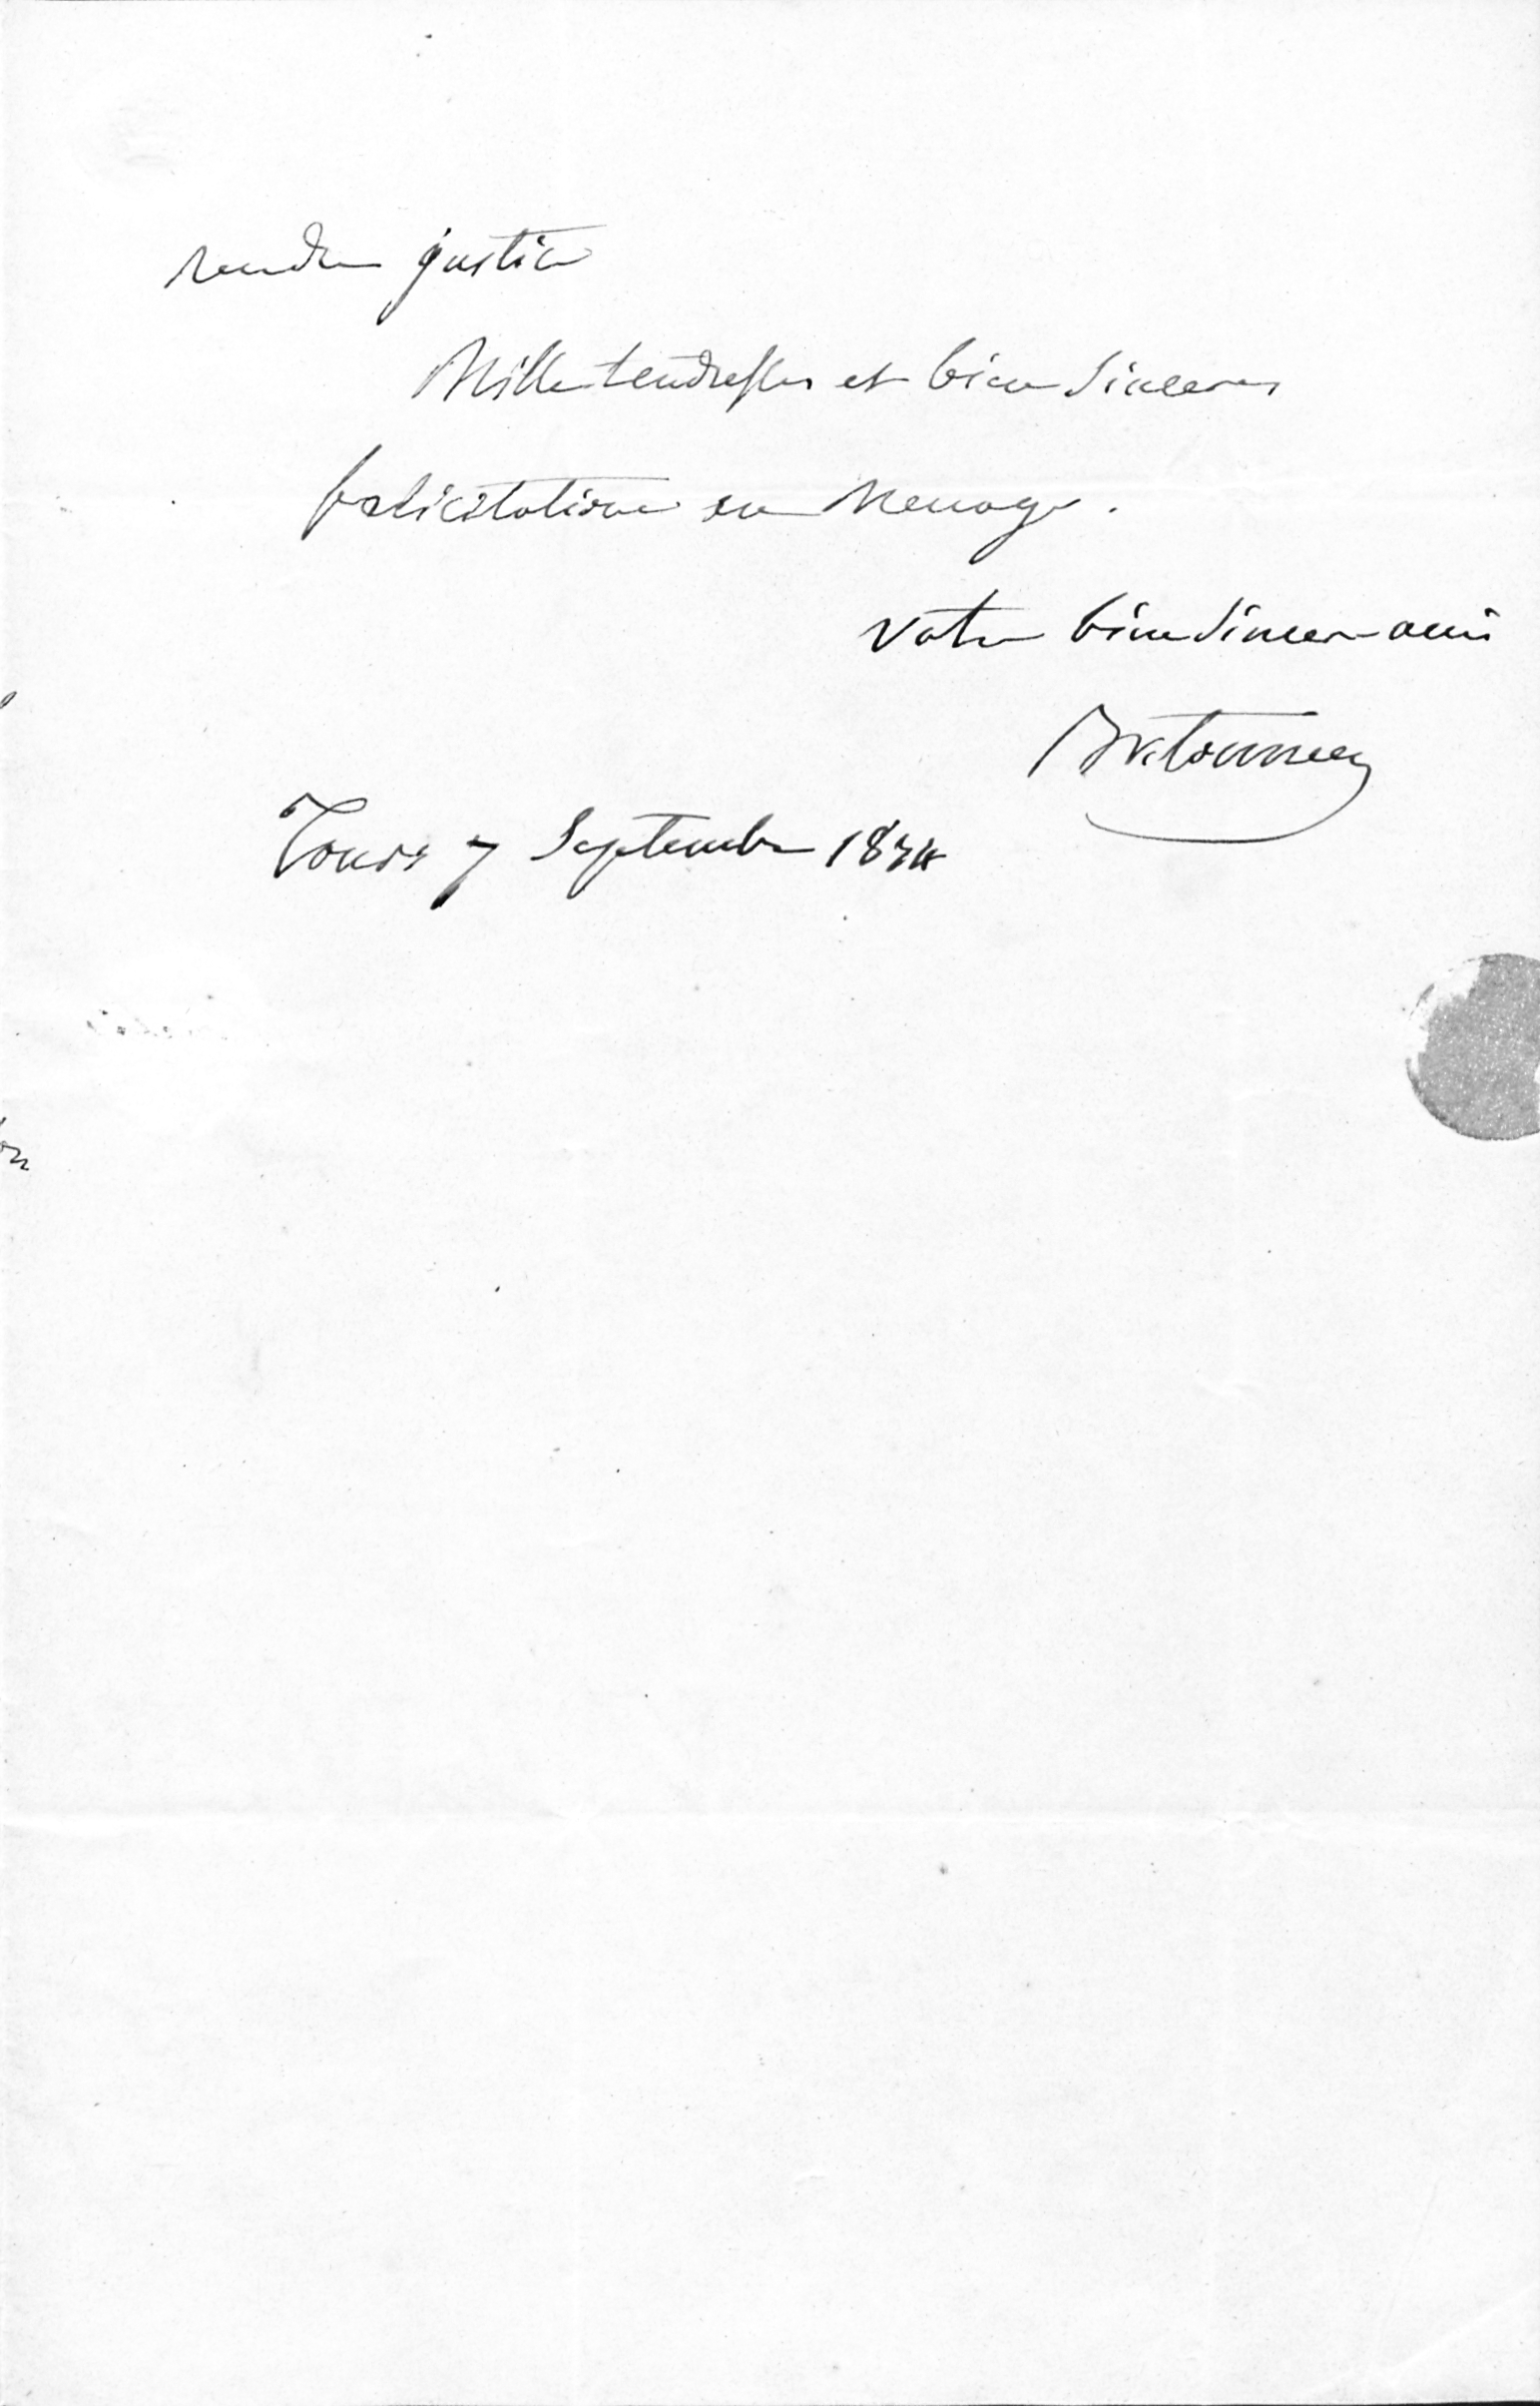 rendre justice
Mille tendresses et bien sinceres
felicitations au menage.
votre bien sincere ami
Bretonneau
Tours 7 Septembre 1834